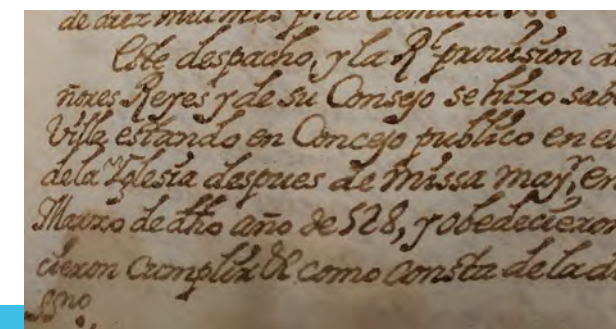 de diez mil mrs p.ª la Camara
Este despacho, y la Rl provision de
ñores Reyes y de su Consejo se hizo sac
Villa estando en Concejo publico en el
de la Yglesia despues de Missa mayr, en
Marzo de dho año de 528, y obedecieron
cieron cumplir &c como consta de la d
ssno